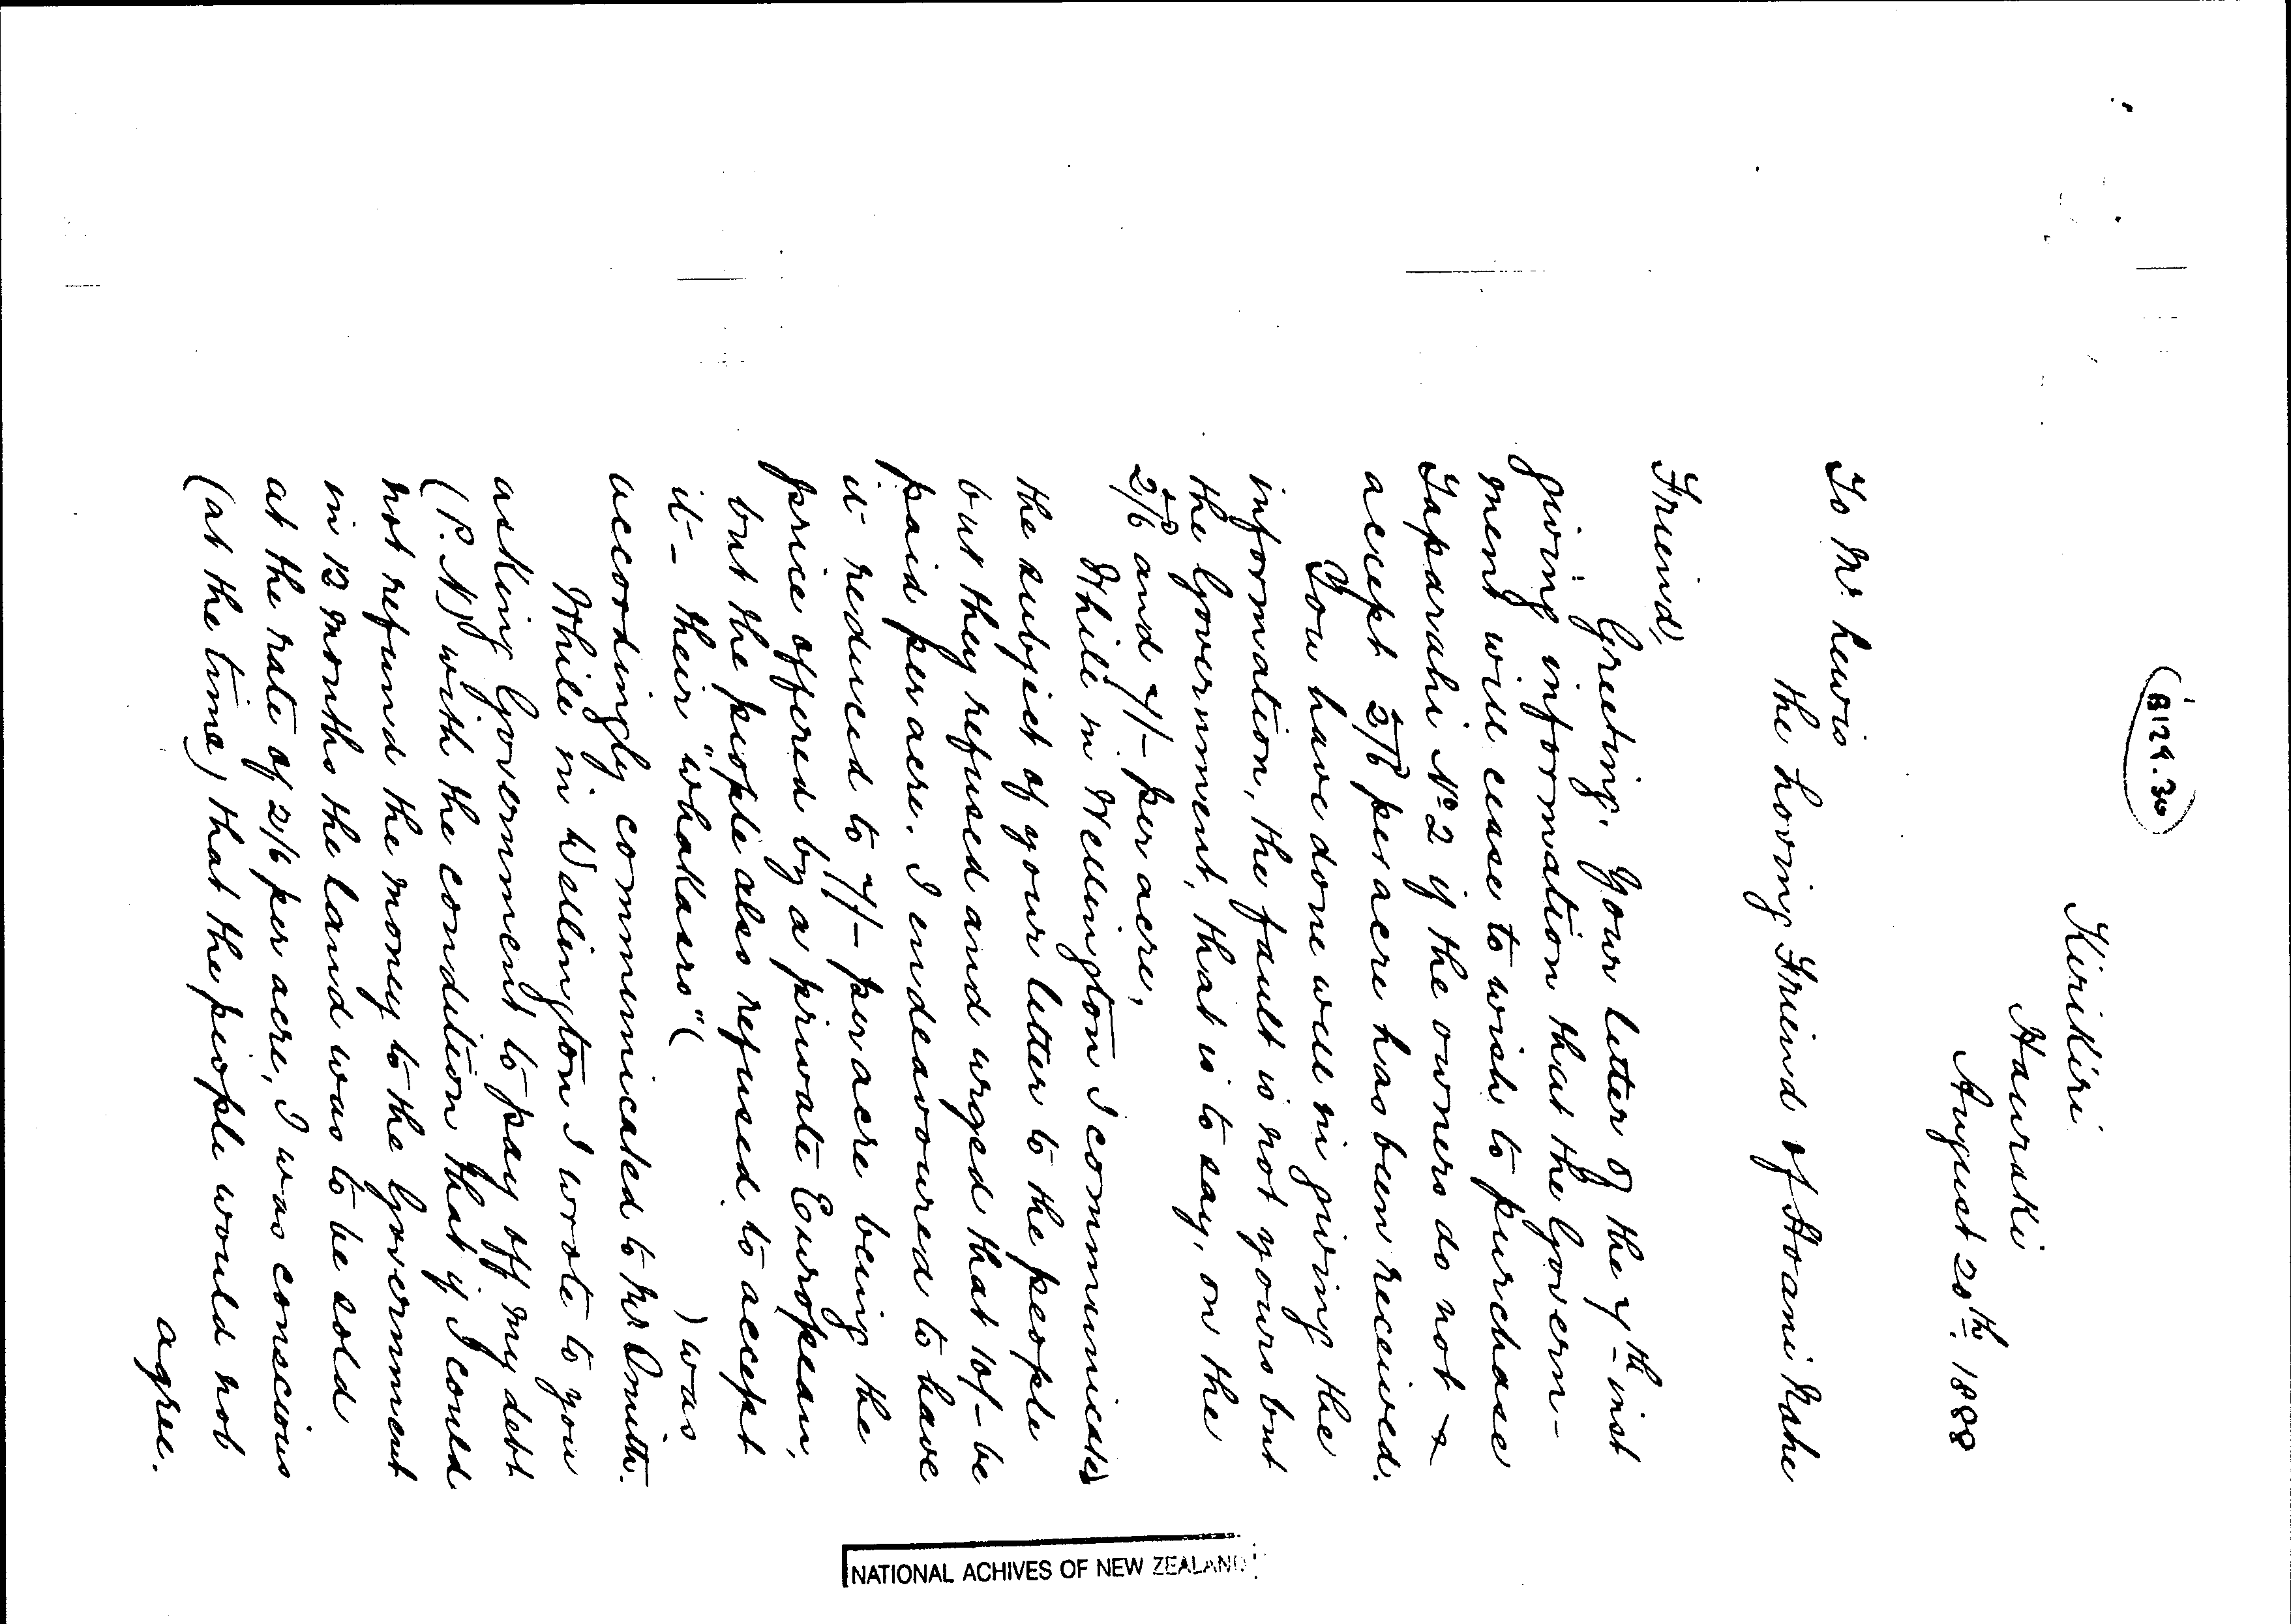 B129.30
Kirikiri
Hauraki
August 20th. 1888
To Mr Lewis
the Loving Friend of Hoani Nahe
Friend,
Greeting. Your letter of the 7th inst
giving information that the Govern-
ment will cease to wish to purchase
Taparahi No 2 if the owners do not
accept 2/6 per acre has been received.
You have done well in giving the
information, the fault is not yours but
the Government, that is to say, on the
2/6 and 7/- per acre,
While in Wellington I communicated
the subject of your letter to the people
but they refused and urged that 10/- be
paid per acre. I endeavoured to have
it reduced to 7/- per acre being the
price offered by a private European,
but the people also refused to accept
it - their "whakaaro" ( ) was
accordingly communicated to Mr Smith.
While in Wellington I wrote to you
asking Government to pay off my debt
(P. N) with the condition that if I could
not refund the money to the Government
in 12 months the land was to be sold
at the rate of 2/6 per acre, I was conscious
(at the time) that the people would not
agree.
NATIONAL ACHIVES OF NEW ZEALAND